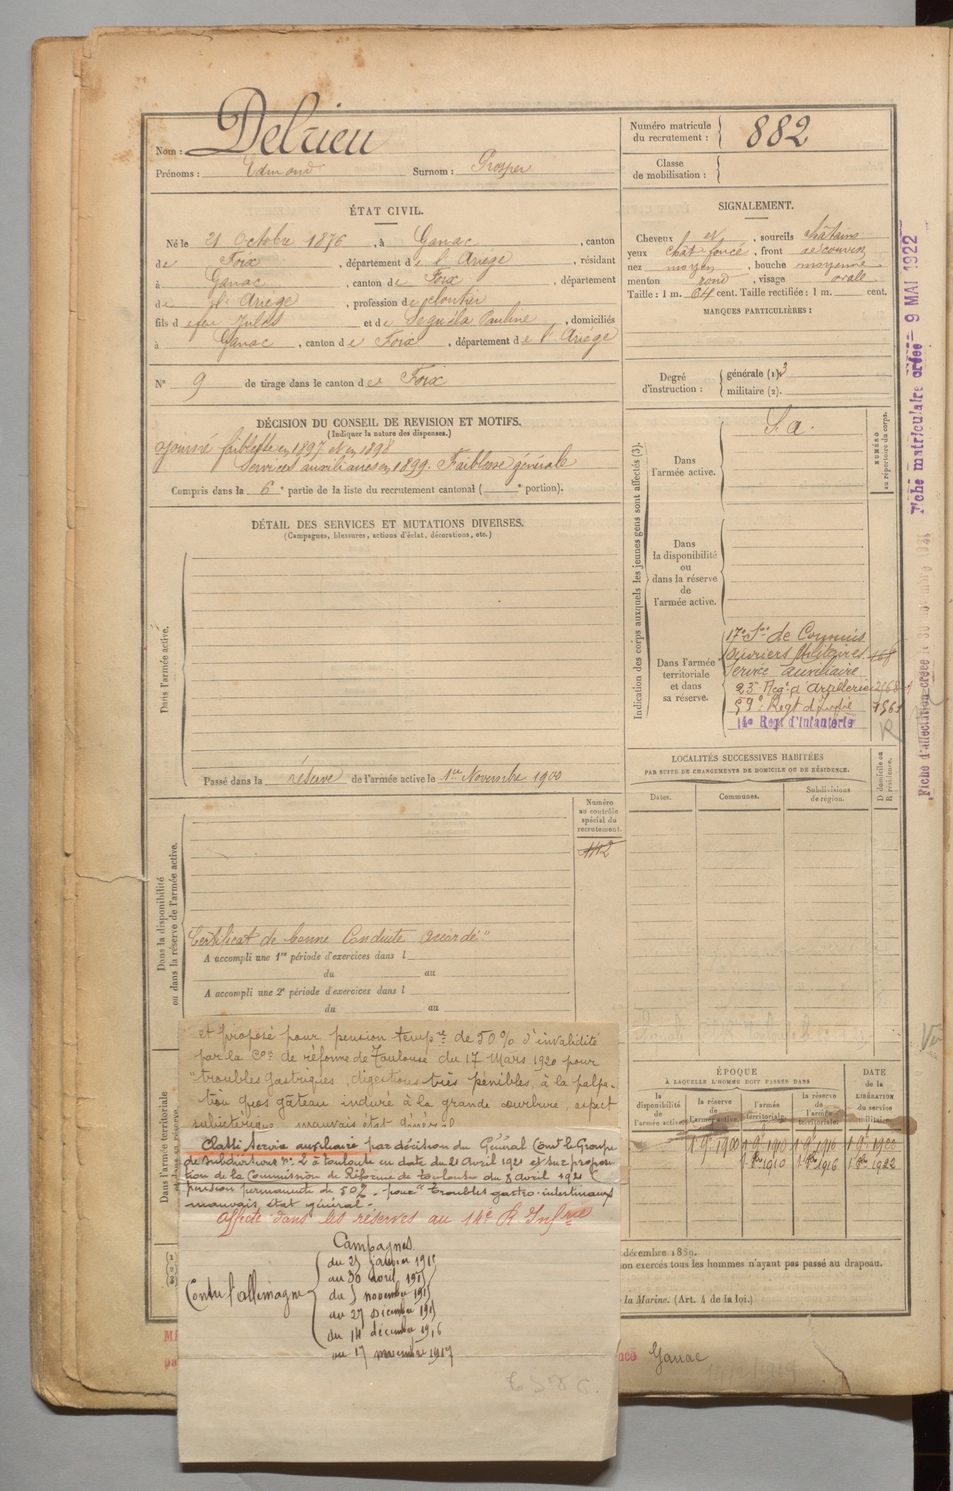 Nom : Delrieu
Prénoms : Edmond Surnom : Prosper
Numéro matricule du recrutement : 882
Classe de mobilisation :
ÉTAT CIVIL.
Né le 21 Octobre 1876, à Ganac, canton
de Foix, département de l'Ariège, résidant
à Ganac, canton de Foix département
de l'Ariège, profession de cloutier
fils de feu Jules et de Seguéla Pauline, domiciliés
à Ganac, canton de Foix, département de l'Ariège
N° 9 de tirage dans le canton de Foix
SIGNALEMENT.
Cheveux et, sourcils châtains
yeux chât foncé, front découvert
nez moyen, bouche moyenne
menton rond, visage ovale
Taille : 1 m. 64 cent. Taille rectifiée : 1 m. cent.
MARQUES PARTICULIÈRES :
Degré d'instruction : générale (1). 3
militaire (2).
DÉCISION DU CONSEIL DE REVISION ET MOTIFS.
(Indiquer la nature des dispenses.)
Ajourné faiblesse en 1897 et en 1898
Services auxiliaires en 1899. Faiblesse générale
Compris dans la 6e partie de la liste du recrutement cantonal ( e portion).
DÉTAIL DES SERVICES ET MUTATIONS DIVERSES.
(Campagnes, blessures, actions d'éclat, décorations, etc.)
Dans l'armée active.
Passé dans la réserve de l'armée active le 1er Novembre 1900
Indication des corps auxquels les jeunes gens sont affectés (3).
Dans l'armée active.
S. a.
NUMÉRO au répertoire du corps.
Dans la disponibilité ou dans la réserve de l'armée active.
Dans l'armée territoriale et dans sa réserve.
17e Son de Commis
Ouvriers Militaires
Service auxiliaire
23e Regt d'Artillerie
59e Regt d'Infrie
14e Regt d'Infanterie
LOCALITÉS SUCCESSIVES HABITÉES
PAR SUITE DE CHANGEMENTS DE DOMICILE OU DE RÉSIDENCE.
Dates. Communes. Subdivisions de région. D domicile ou R résidence.
Numéro au contrôle spécial du recrutement.
112
Dans la disponibilité ou dans la réserve de l'armée active.
Certificat de bonne Conduite "accordé"
A accompli une 1re période d'exercices dans l
du au
A accompli une 2e période d'exercices dans l
du au
Dans l'armée territoriale
et proposé pour pension tempre de 50% d'invalidité
par la Con de réforme de Toulouse du 17 Mars 1920 pour
"troubles gastriques, digestions très pénibles, à la palpa-
tion gros gâteau induré à la grande courbure, aspect
subictérique, mauvais état général
Classé Service auxiliaire par décision du Général Comt le Groupe
de Subdivisions n° 2 à Toulouse en date du 21 Avril 1921 et sur proposi
tion de la Commission de Réforme de Toulouse du 8 avril 1921
pension permanente de 50%. pour "troubles gastro-intestinaux
mauvais état général.
Affecté dans les réserves au 14e R Infrie
Campagnes
Contre l'allemagne
du 25 janvier 1915
au 30 avril 1915
du 5 novembre 1915
au 27 décembre 1915
du 14 décembre 1916
au 17 novembre 1917
ÉPOQUE
À LAQUELLE L'HOMME DOIT PASSER DANS
la disponibilité de l'armée active
la réserve de l'armée active
l'armée territoriale.
la réserve de l'armée territoriale
DATE de la LIBÉRATION du service militaire.
1 9bre 1900 1 9bre 1910 1 9bre 1916 1 9bre 1922
décembre 1889.
on exercés tous les hommes n'ayant pas passé au drapeau.
la Marine. (Art. 4 de la loi.)
Ganac
Fiche matriculaire créée 9 MAI 1922
Fiche d'affectation créée le